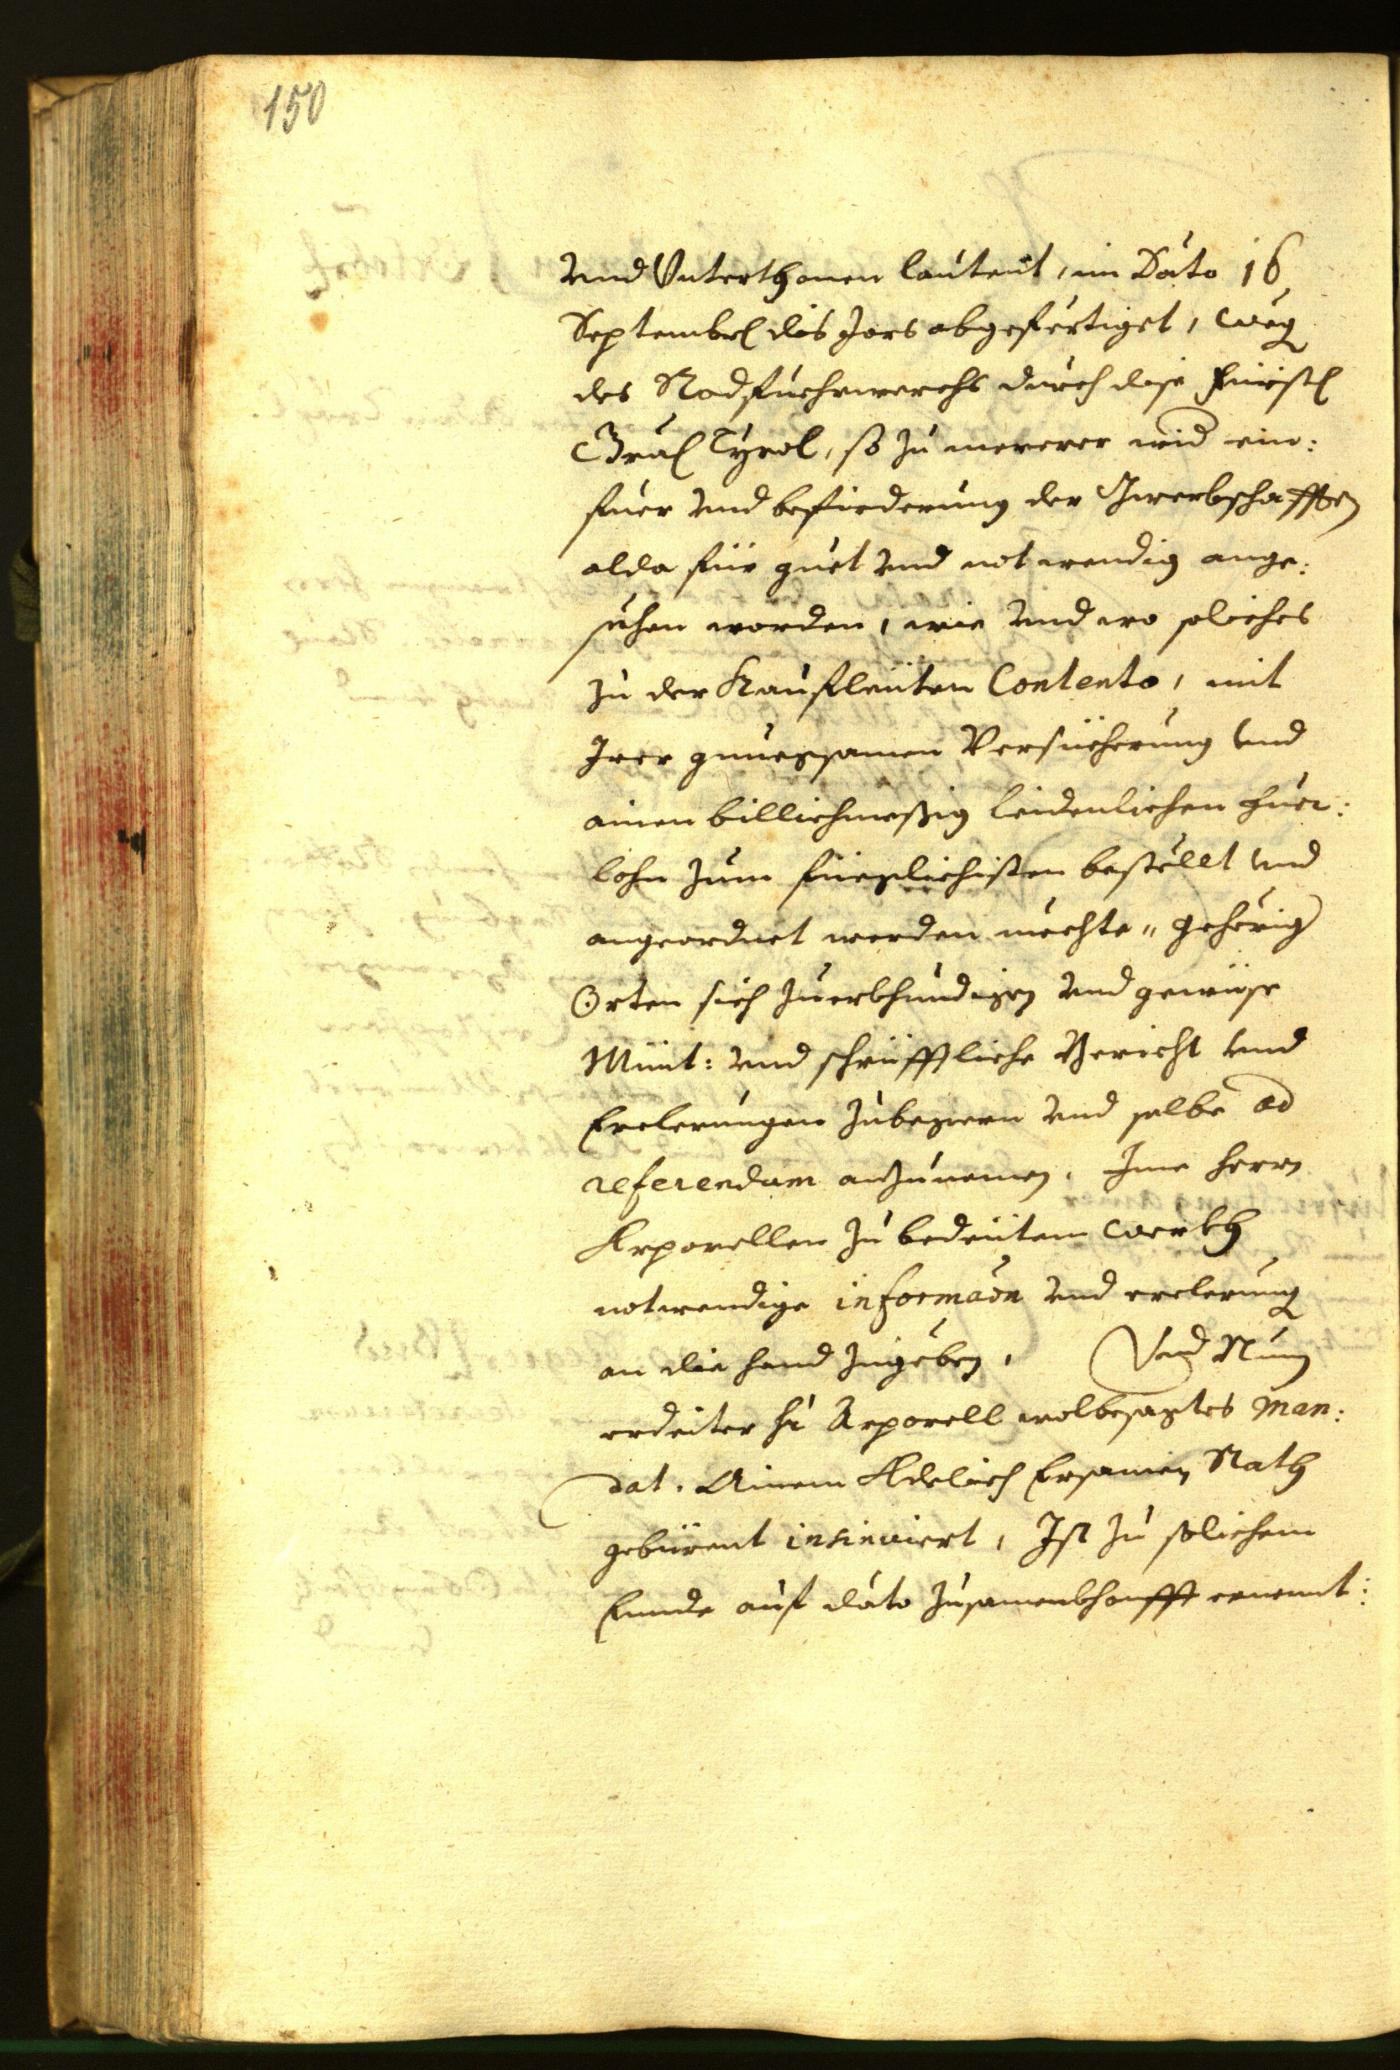 150
vnd Vnterthonen lautent, im Dato 16
Septembr diß Jars abgefertiget, weg
des Rodfuehrwerchs durch dise Fürstl
Graf Tyrol, so zu merer wid ein:
fuer vnd befürderung der Gwerbschafften
alda für guet vnd notwendig ange:
sechen worden, wie vnd wo soliches
zu der Kaufleüten Contento, mit
Irer gnuegsamen Versicherung vnd
ainen billichmeßig leidenlichen fuer:
lohn zum füeglichisten bestellt vnd
angeordnet werden mechte, gehörig
Orten sich zuerkhundigen vnd gewise
Münt: vnd schrüfftliche Bericht vnd
Erclerungen zubegern vnd selbe ad
referendum anzunemen. Ime Herrn
Arporellen zu bedeüten werkh
notwendige informaōn vnd erclerung
an die hand zugeben, Vnd Nun
erdeiter hr Arporell wolbesagtes Man:
dat. Ainem Adelich Ersamen Rath
gebürent insinuiert, Ist zu solichem
Ennde auf dato zusamenkhonfft ernennt: